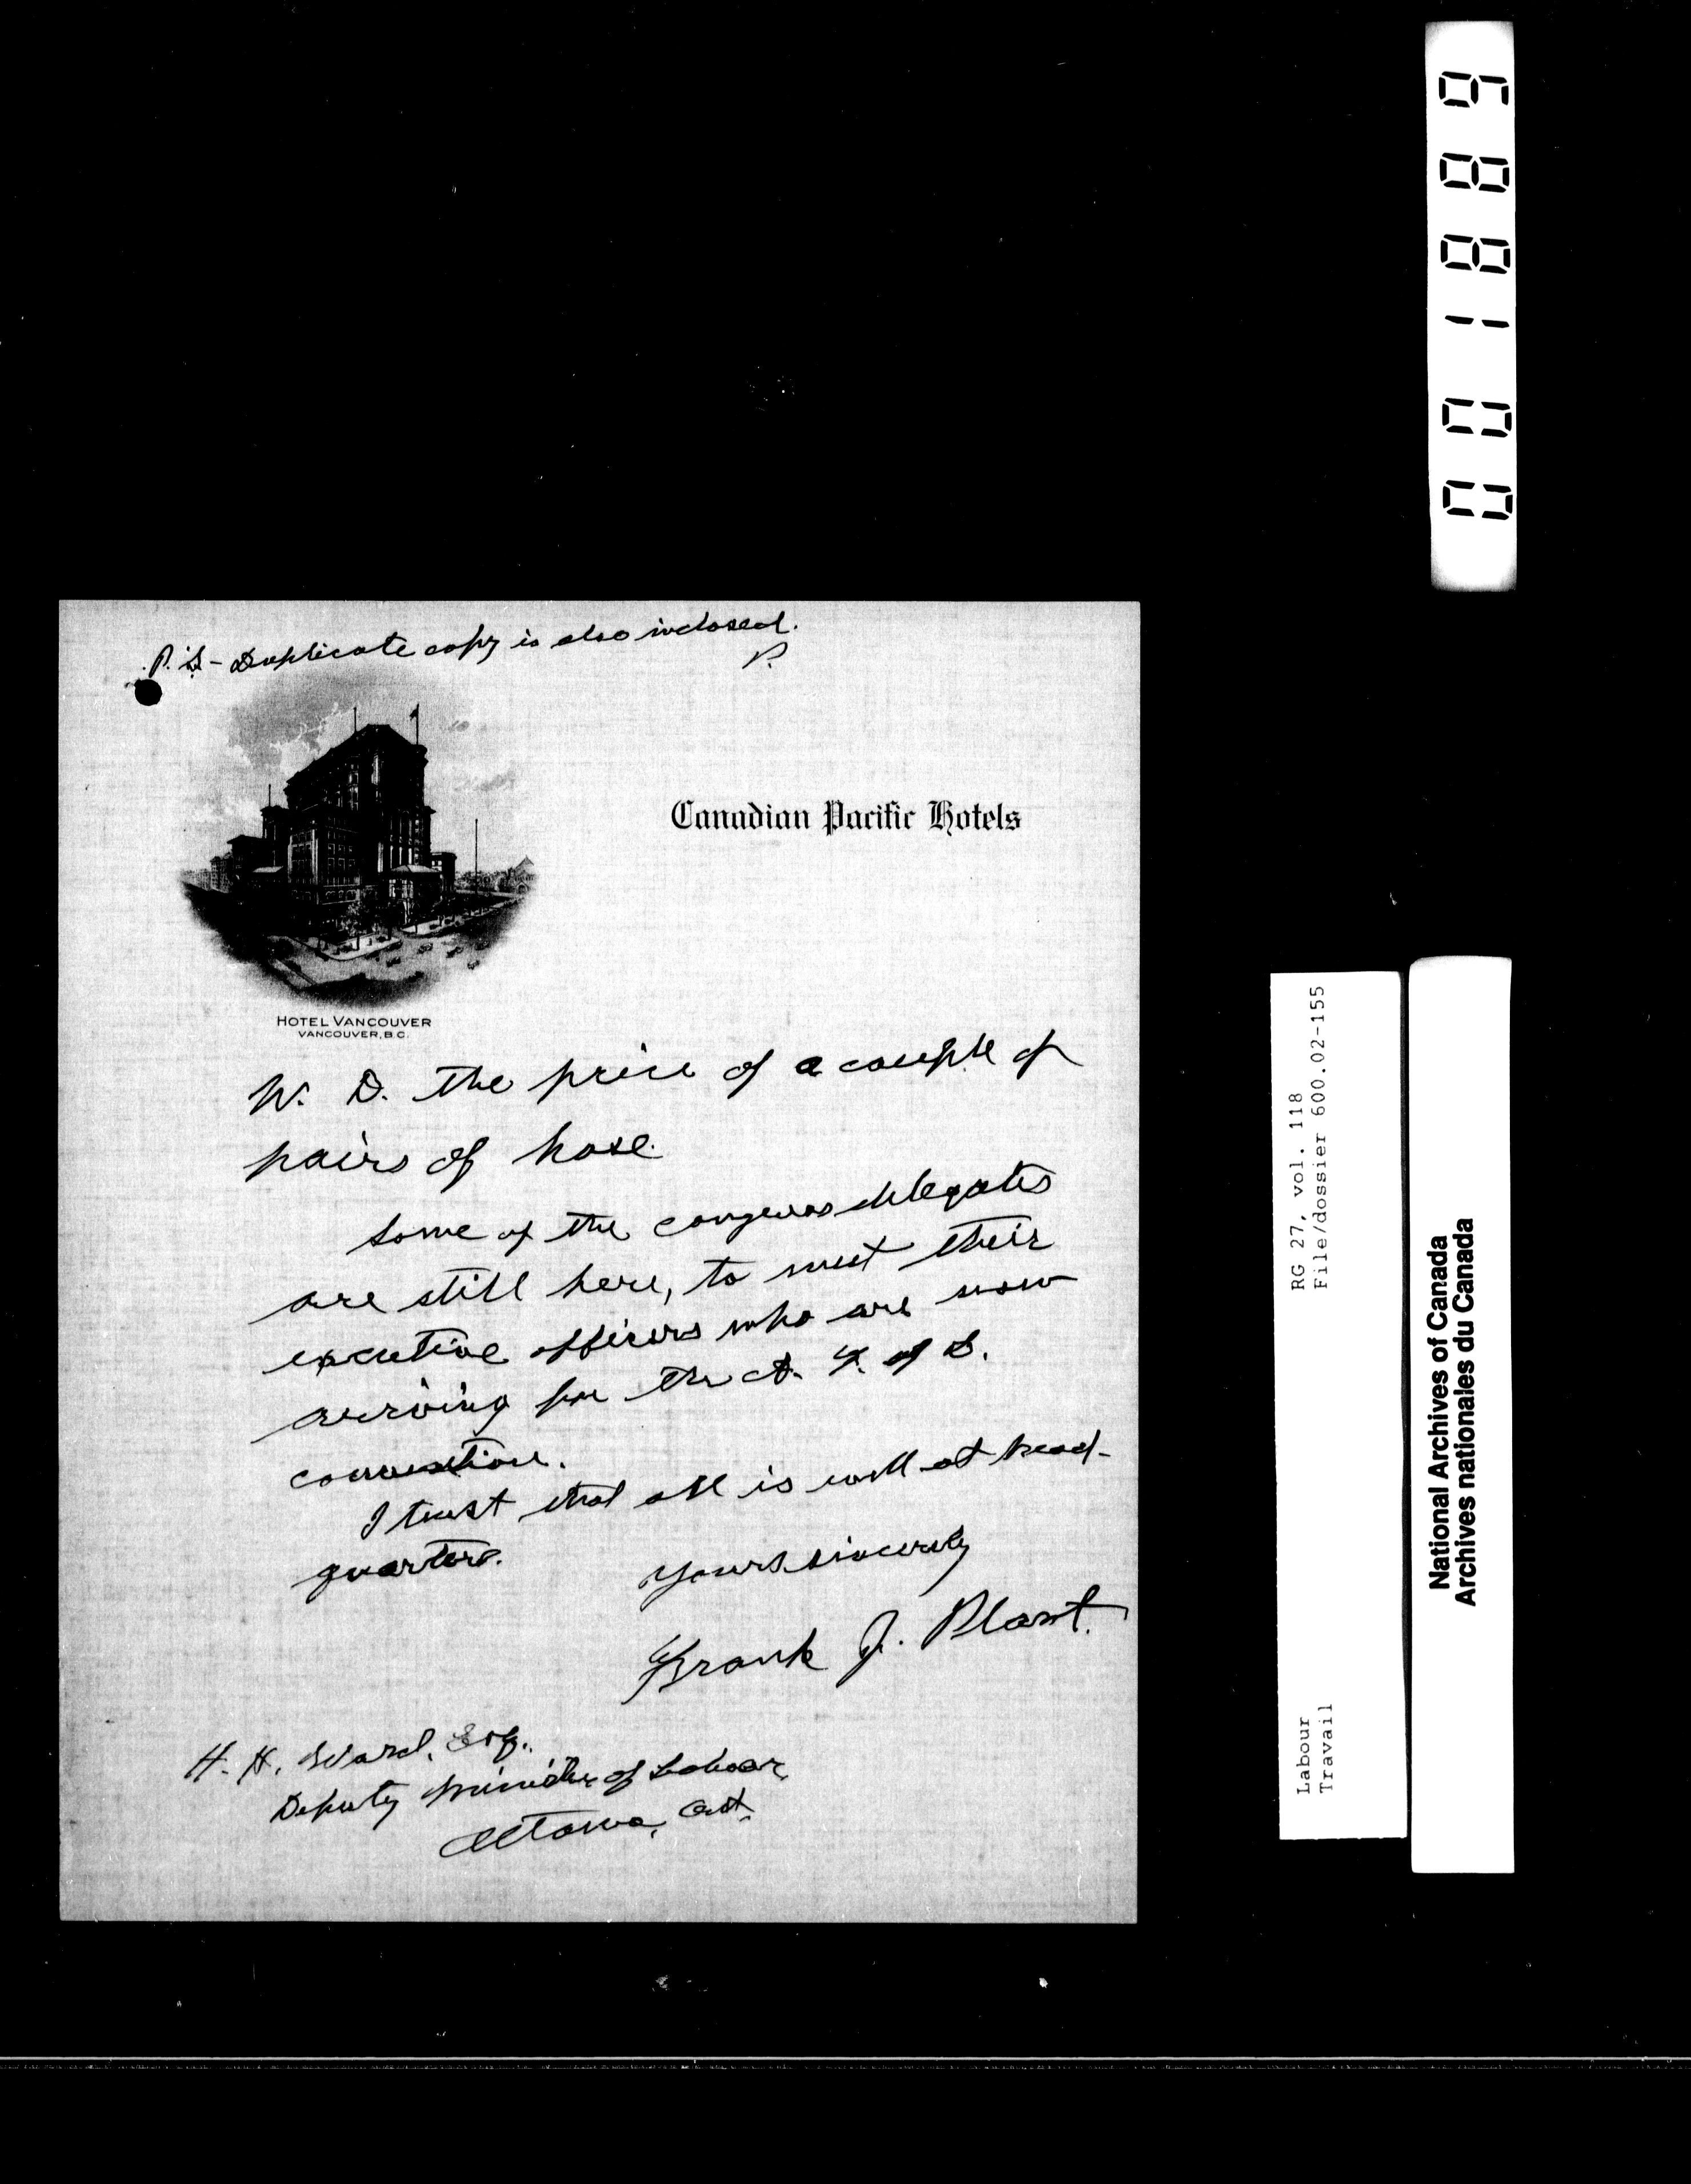 P.S - Duplicate copy is also inclosed.
P.
Canadian Pacific Hotels
HOTEL VANCOUVER
VANCOUVER, B.C.
W. D. the price of a couple of
pairs of hose.
Some of the congress delegates
are still here, to meet their
executive officers who are now
arriving for the A. F. of L.
convention.
I trust that all is well at head-
quarters.
Yours sincerely
Frank J. Plant.
H. H. Ward, Esq.,
Deputy Minister of Labour,
Ottawa, Ont.
001889
RG 27, vol. 118
File/dossier 600.02-155
Labour
Travail
National Archives of Canada
Archives nationales du Canada